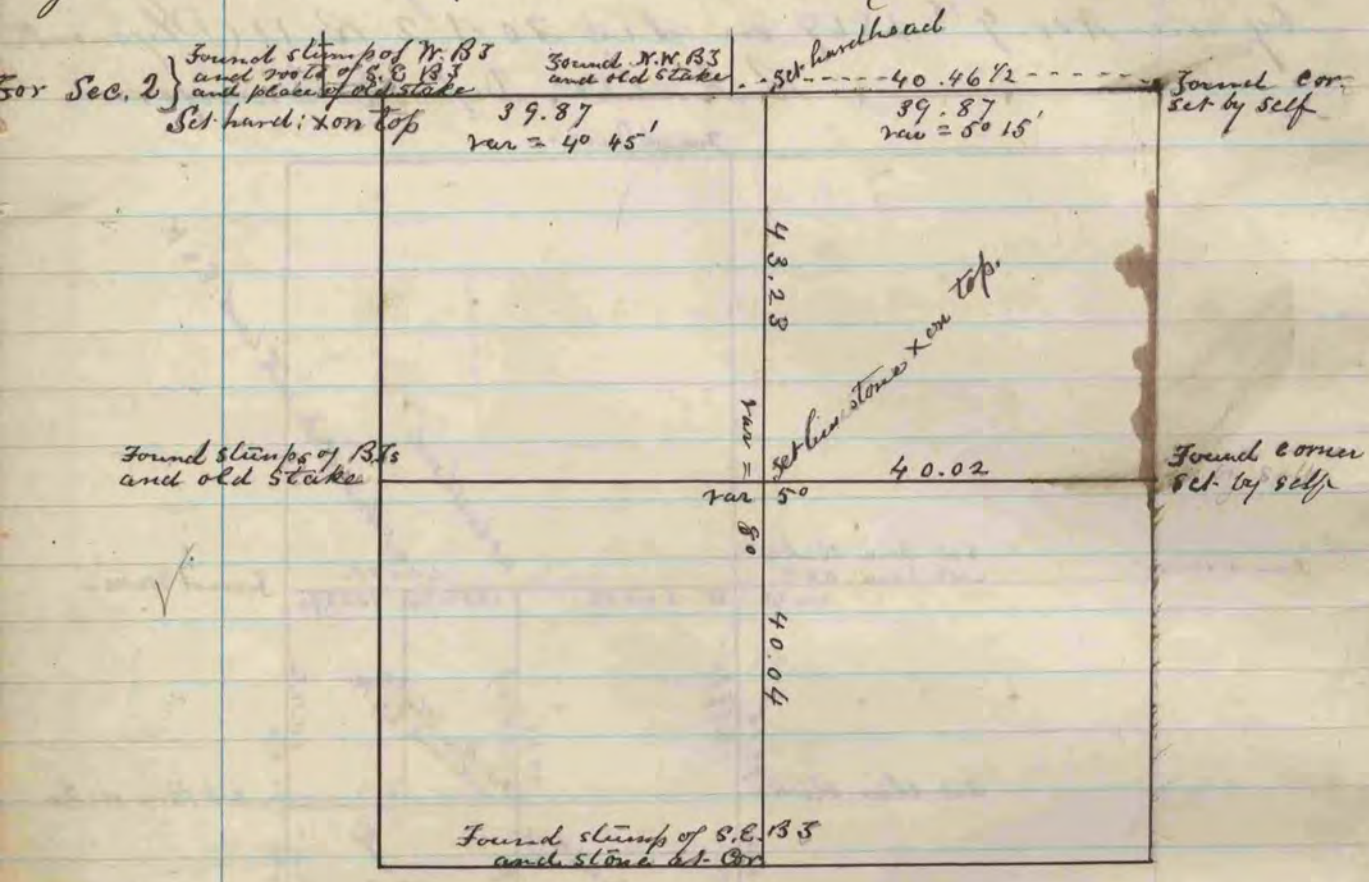 For Sec. 2 }
Found stump of W. BT
and roots of S. E BT
and place of old stake
Set hard: x on top
Found N.W. BT
and old stake
set hardhead
40.46 1/2
Found cor.
set by self
39.87
var = 4° 45'
39.87
var = 5° 15'
43.23
set limestone x on top.
Found stumps of BTs
and old stake
var =
40.02
Found corner
set by self
var 5°
40.04
Found stump of S.E. BT
and stone at Cor